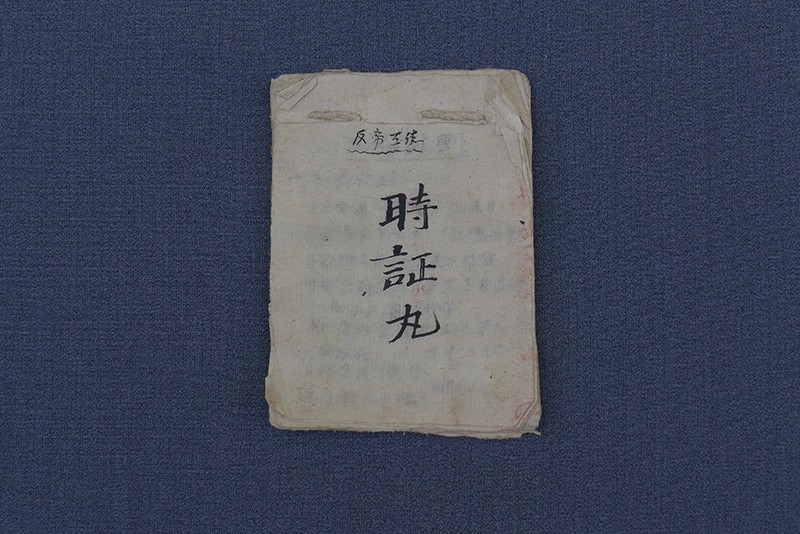 反帝互徒
時証丸